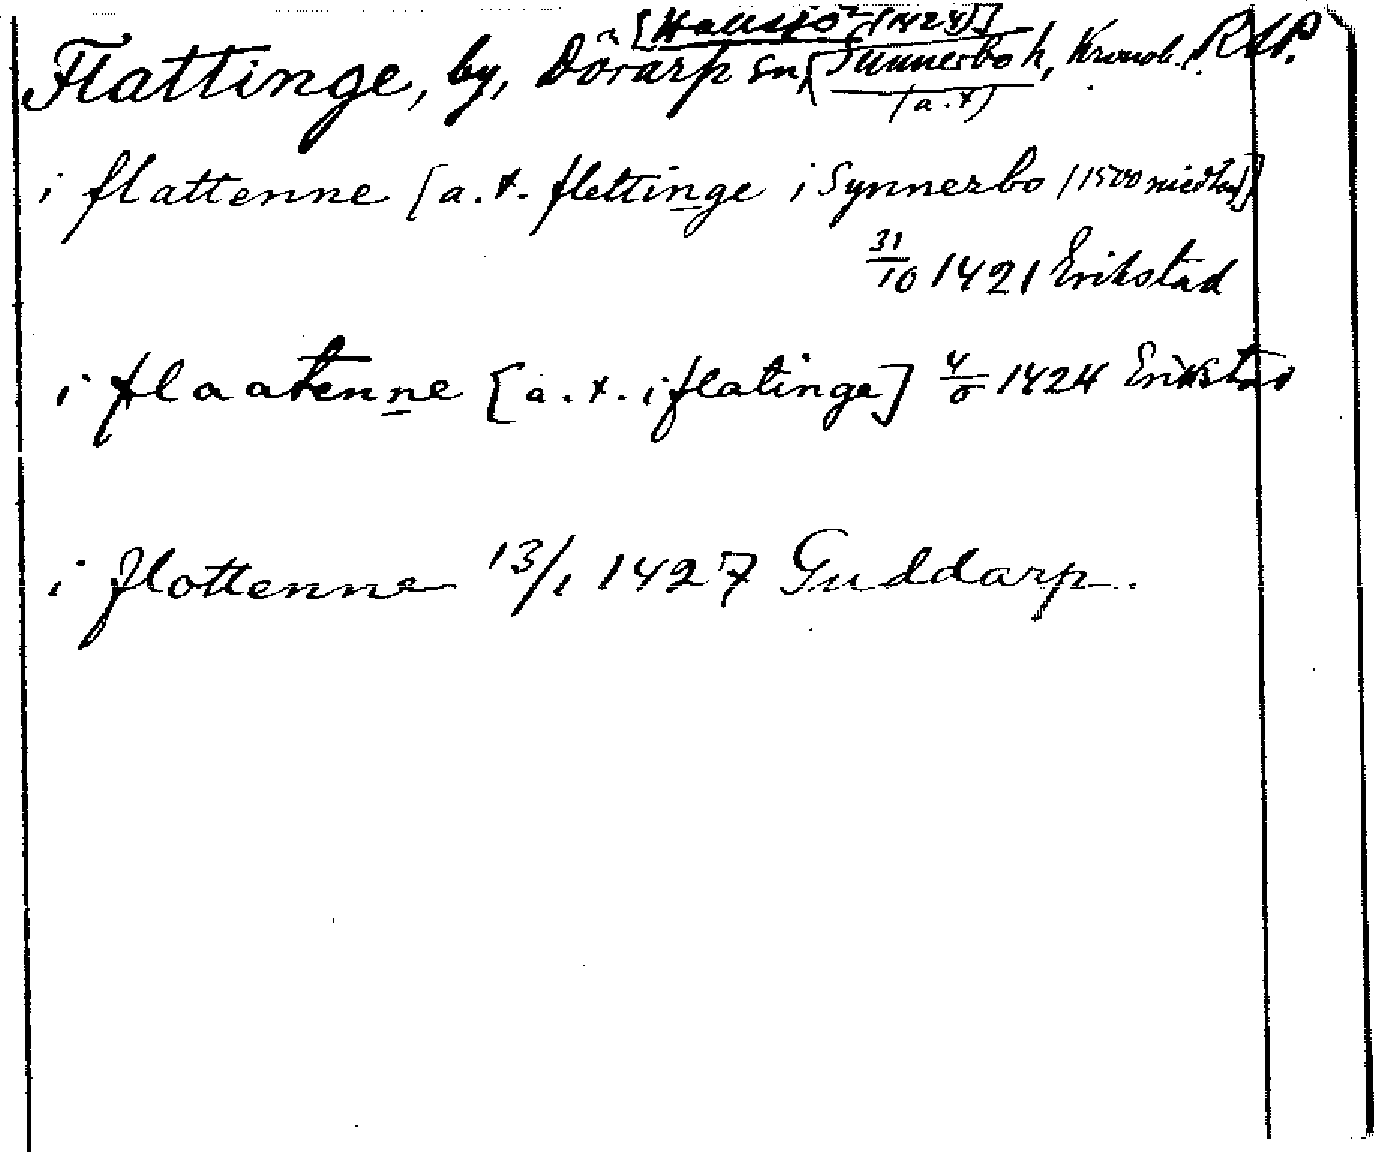 [Hallsjö 1424)]
Flattinge, by, Dörarp sn, (Sunnerbo h, Kronob. l. RAP.
(a.t)
i flattenne [a.t. flettinge i Synnerbo (1500 medlas)]
31/10 1421 Erikstad
i flaatenne [a.t. i flatinge] 4/8 1424 Erikstad
i flottenne 13/1 1427 Guddarp.